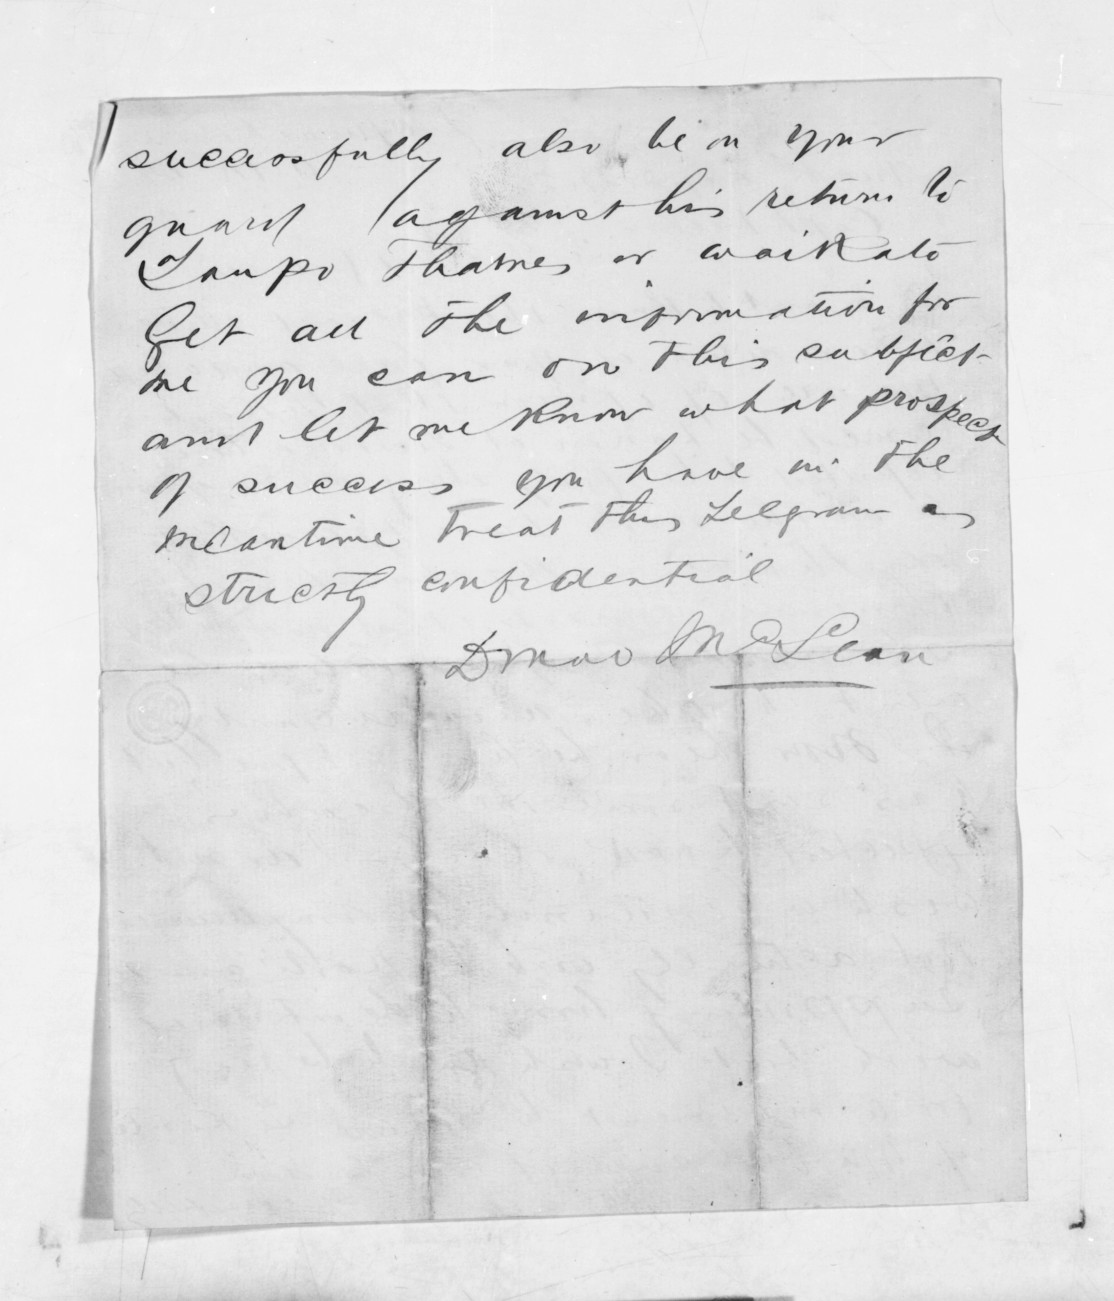 successfully also be on your
guard against his return to
Taupo Thames or Waikato
Get all the information for
me you can on this subject
and let me know what prospect
of success you have in the
meantime treat this telegram as
strictly confidential
McLean